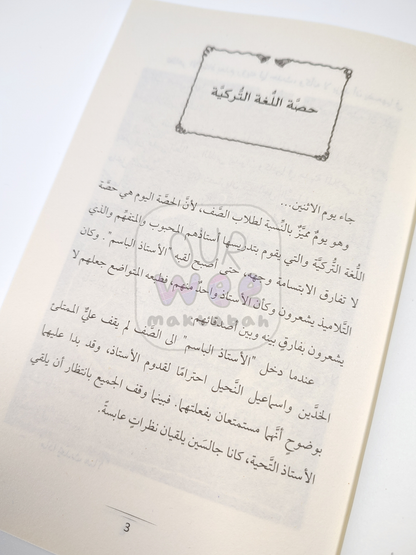 حصَّة اللُّغة التُّركيَّة
جاء يوم الاثنين...
وهو يومٌ مميَّزٌ بالنِّسبة لطلاب الصَّف، لأنَّ الحصَّة اليوم هي حصَّة
اللُّغة التُّركيَّة والتي يقوم بتدريسها أستاذهم المحبوب والمتفهِّم والذي
لا تفارق الابتسامة وجهه، حتى أصبح لقبه "الأستاذ الباسم". وكان
التَّلاميذ يشعرون وكأن الأستاذ واحدٌ منهم، فطبعه المتواضع جعلهم لا
يشعرون بفارقٍ بينه وبين أصدقائهم.
عندما دخل "الأستاذ الباسم" الى الصَّف لم يقف عليٌّ الممتلئ
الخدَّين واسماعيل النَّحيل احترامًا لقدوم الأستاذ، وقد بدا عليهما
بوضوحٍ أنَّهما مستمتعان بفعلتهما. فبينما وقف الجميع بانتظار أن يلقي
الأستاذ التَّحية، كانا جالسَين يلقيان نظراتٍ عابسةً.
3
OUR
wee
maktabah